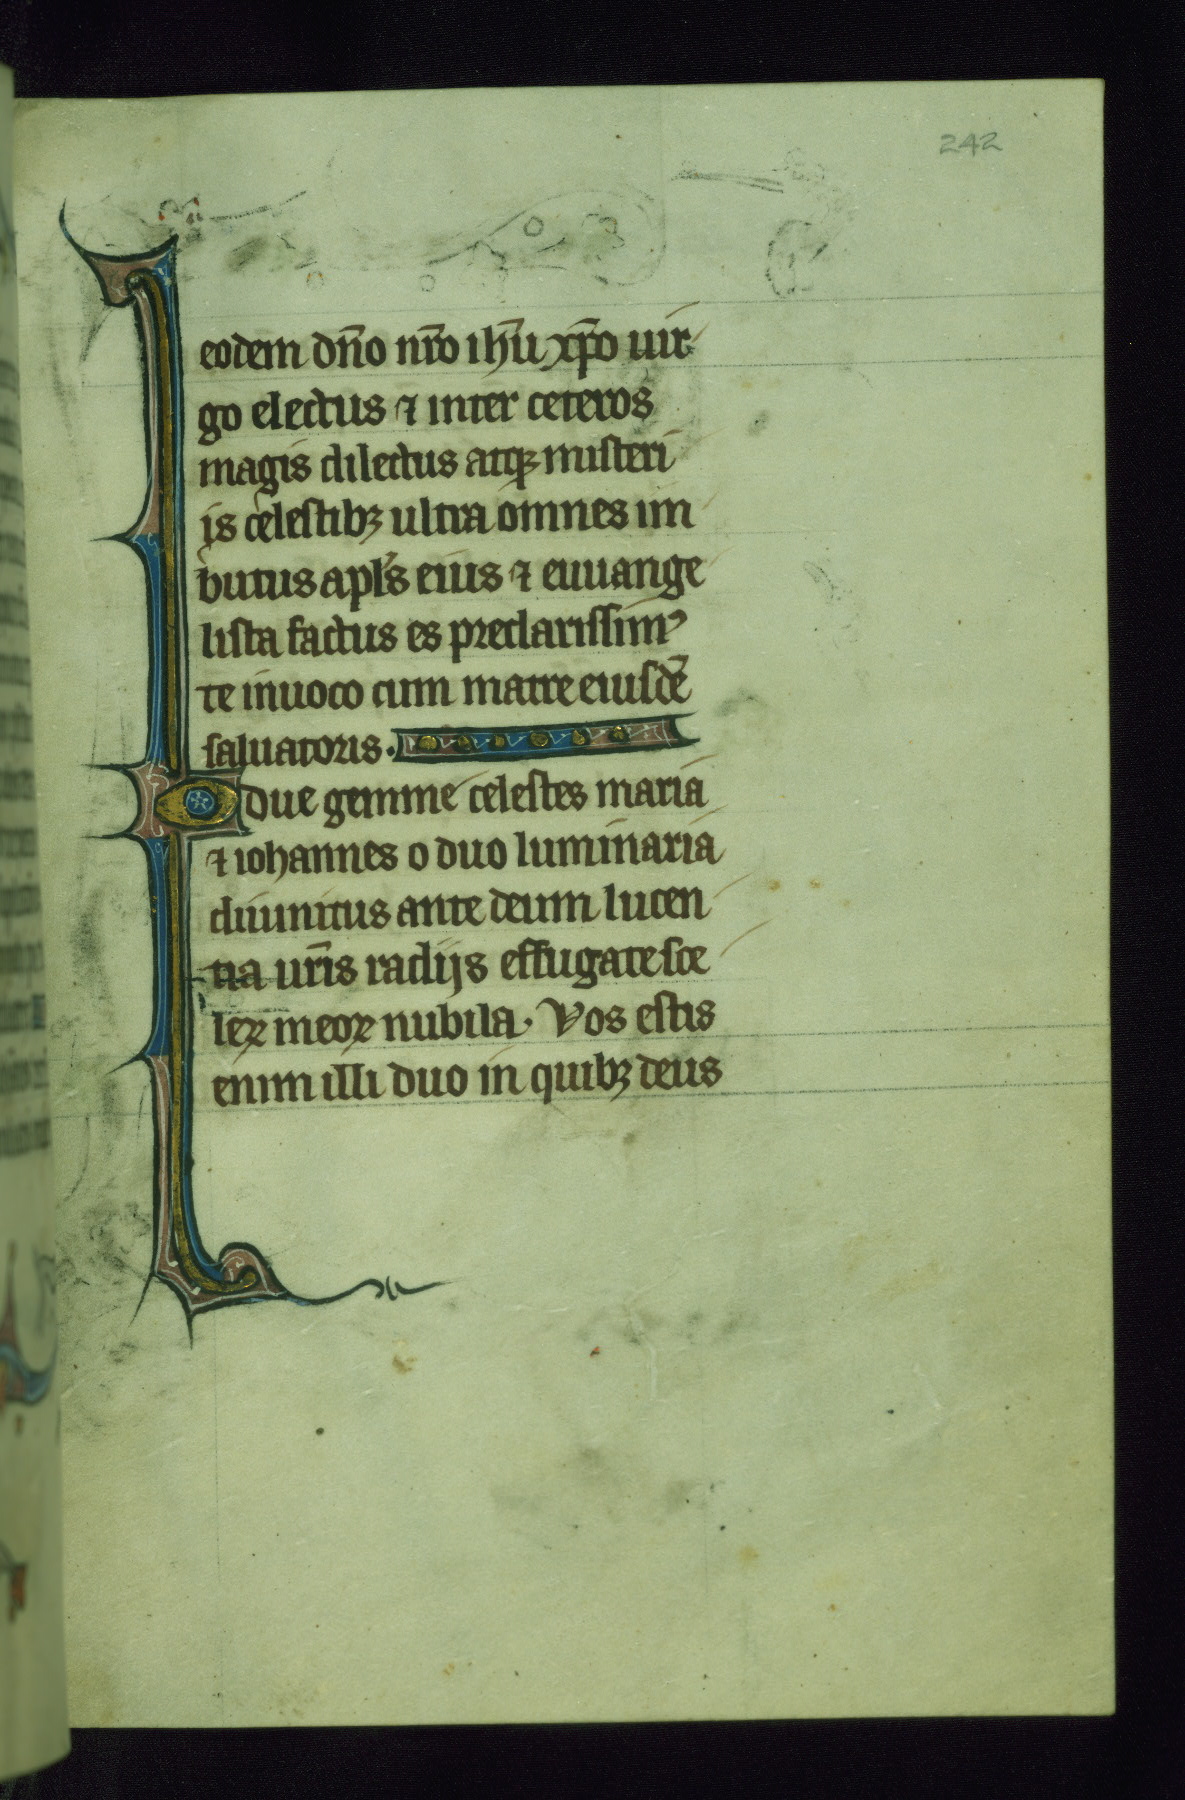 242
eodem dn̄o nr̄o ihū xp̄o uir
go electus ⁊ inter ceteros
magis dilectus atqꝫ misteri
is celestibꝫ ultra omnes im
butus apl's eius ⁊ euuange
lista factus es preclarissimꝰ
te inuoco cum matre eiusdē
saluatoris.
O due gemme celestes maria
⁊ iohannes o duo luminaria
diuinitus ante deum lucen
tia ur̄is radijs effugate sce
leꝝ meoꝝ nubila. Vos estis
enim illi duo in quibꝫ deus